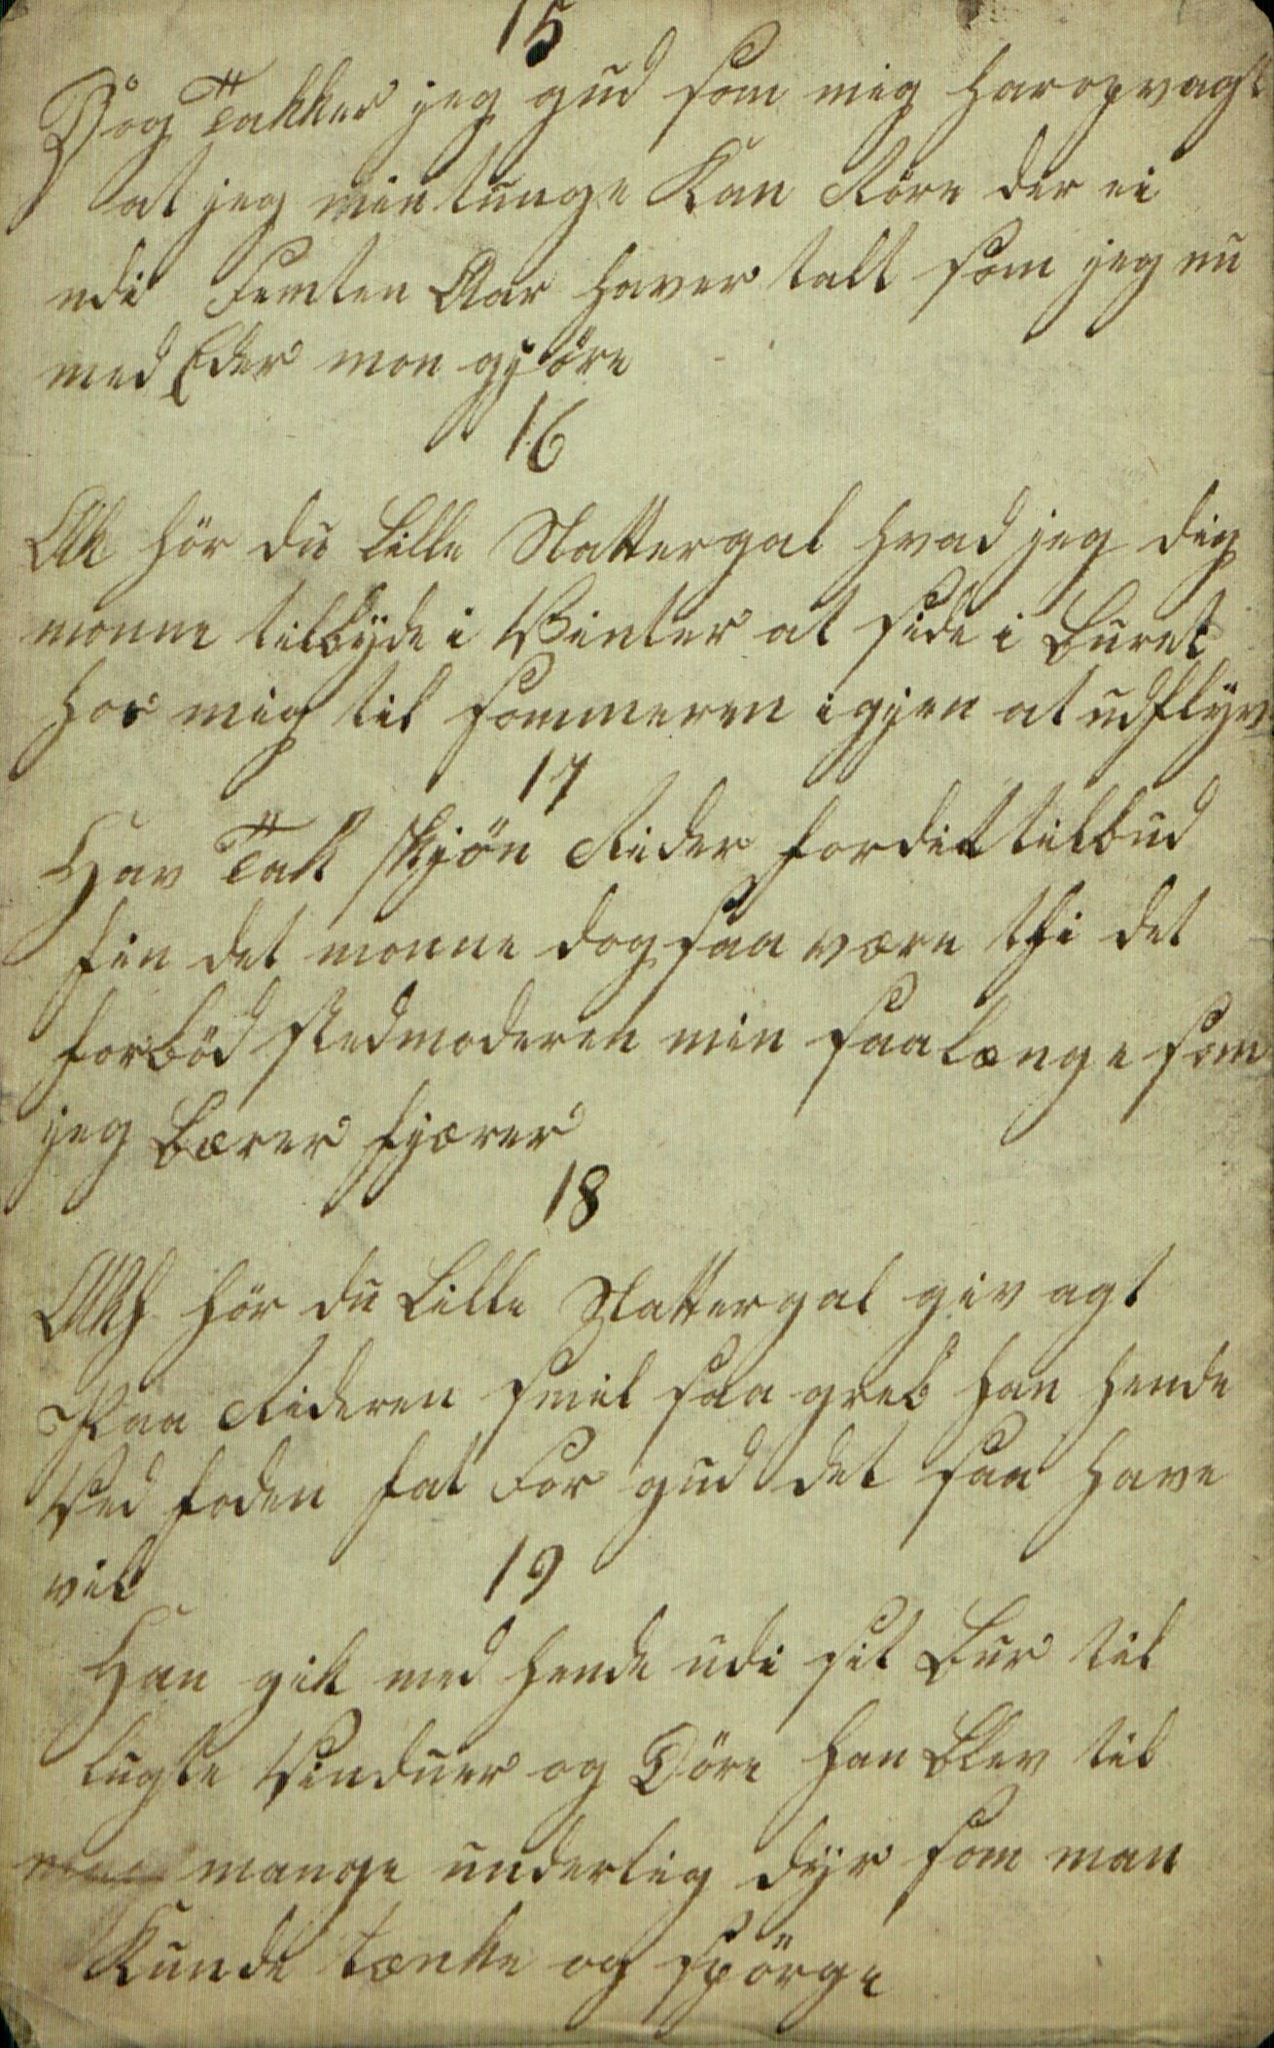 15
Dog Takker jeg gud som mig har opvagt
at jeg min tunge Kan Röre der ei
udi Femten Aar haver talt som jeg nu
med Eder mon gjöre
16
Ak hör du Lille Nattergal hvad jeg dig
monne tilbyde i Vinter at side i Buret
hos mig til sommeren igjen at udflyve
17
Hav Tak skjön Rider for dit tilbud
fin det monne dog saa være thi det
forböd stedmoderen min saa længe som
jeg Bærer fjærer
18
Akh hör du Lille Nattergal giv agt
Paa Rideren smil saa greb han hende
Ved foden fat For gud det saa have
vil
19
Han gik med hende udi sit Bur til
lugte Vinduer og Döre han Blev til
mange underlig dyr som man
Kunde tænke og spörge